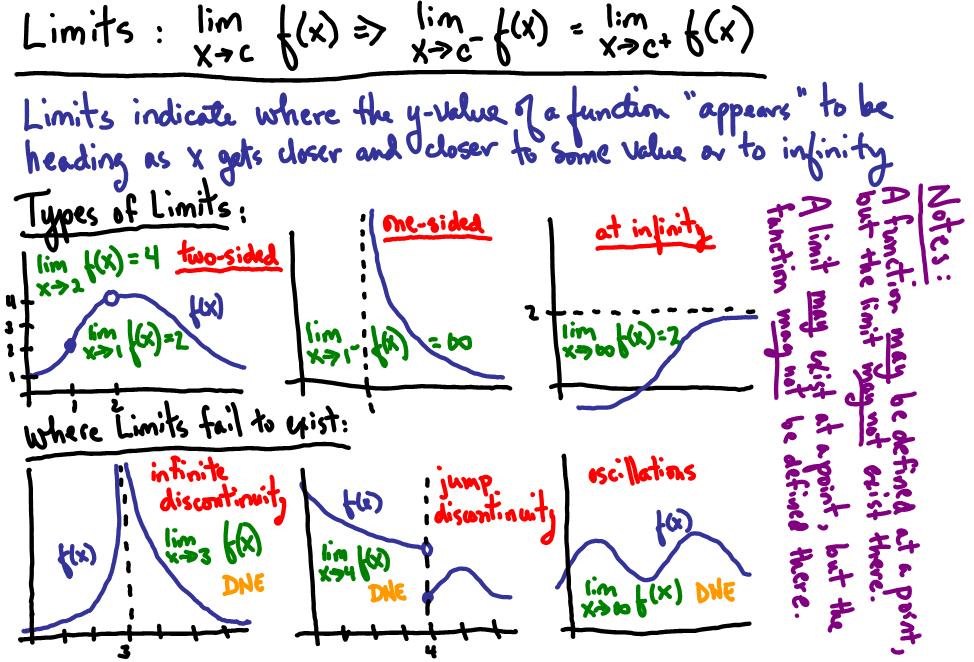 Limits: lim x→c f(x) => lim x→c⁻ f(x) = lim x→c⁺ f(x)
Limits indicate where the y-value of a function "appears" to be
heading as x gets closer and closer to some value or to infinity
Types of Limits:
lim x→2 f(x) = 4
two-sided
f(x)
lim x→1 f(x) = 2
4
3
2
1
1
2
one-sided
lim x→1⁻ f(x) = ∞
1
at infinity
2
lim x→∞ f(x) = 2
where Limits fail to exist:
infinite
discontinuity
f(x)
lim x→3 f(x)
DNE
3
jump
discontinuity
f(x)
lim x→4 f(x)
DNE
4
oscillations
f(x)
lim x→∞ f(x) DNE
Notes:
A function may be defined at a point,
but the limit may not exist there.
A limit may exist at a point, but the
function may not be defined there.